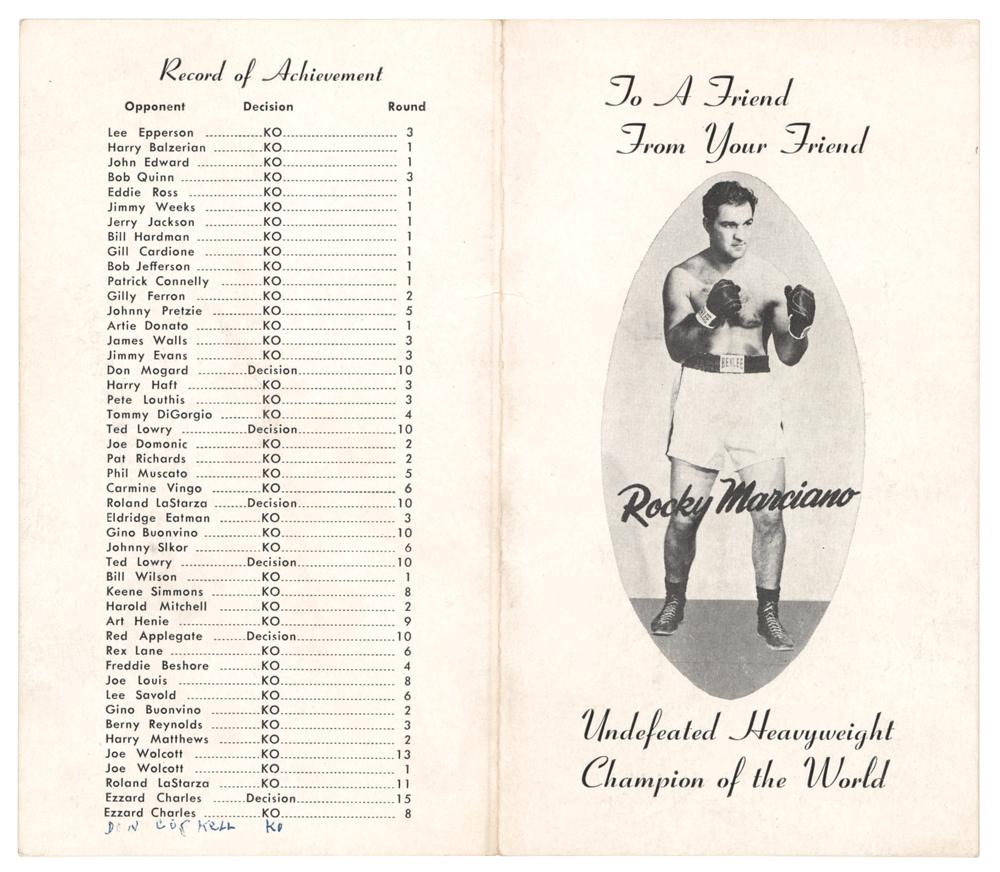 Record of Achievement
Opponent Decision Round
Lee Epperson ............KO................................ 3
Harry Balzerian ..........KO................................ 1
John Edward ............KO................................ 1
Bob Quinn ............KO................................ 3
Eddie Ross ............KO................................ 1
Jimmy Weeks ............KO................................ 1
Jerry Jackson ............KO................................ 1
Bill Hardman ............KO................................ 1
Gill Cardione ............KO................................ 1
Bob Jefferson ............KO................................ 1
Patrick Connelly ..........KO................................ 1
Gilly Ferron ............KO................................ 2
Johnny Pretzie ..........KO................................ 5
Artie Donato ............KO................................ 1
James Walls ............KO................................ 3
Jimmy Evans ............KO................................ 3
Don Mogard ..........Decision............................10
Harry Haft ............KO................................ 3
Pete Louthis ............KO................................ 3
Tommy DiGorgio ........KO................................ 4
Ted Lowry ............Decision............................10
Joe Domonic ............KO................................ 2
Pat Richards ............KO................................ 2
Phil Muscato ............KO................................ 5
Carmine Vingo ..........KO................................ 6
Roland LaStarza ........Decision............................10
Eldridge Eatman ........KO................................ 3
Gino Buonvino ..........KO................................10
Johnny Slkor ............KO................................ 6
Ted Lowry ............Decision............................10
Bill Wilson ............KO................................ 1
Keene Simmons ..........KO................................ 8
Harold Mitchell ..........KO................................ 2
Art Henie ............KO................................ 9
Red Applegate ........Decision............................10
Rex Lane ............KO................................ 6
Freddie Beshore ........KO................................ 4
Joe Louis ............KO................................ 8
Lee Savold ............KO................................ 6
Gino Buonvino ..........KO................................ 2
Berny Reynolds ..........KO................................ 3
Harry Matthews ..........KO................................ 2
Joe Wolcott ............KO................................13
Joe Wolcott ............KO................................ 1
Roland LaStarza ..........KO................................11
Ezzard Charles ........Decision............................15
Ezzard Charles ..........KO................................ 8
DON KO
To A Friend
From Your Friend
BENLEE
Rocky Marciano
Undefeated Heavyweight
Champion of the World